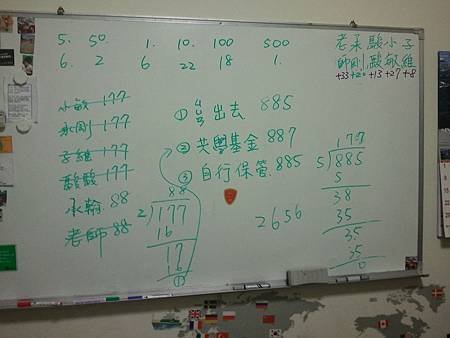 5. 50. 1. 10. 100 500
6. 2 6 22 18 1.
老柔駿小子
師剛駿敏維
+33 +20 +13 +27 +8
小敏 177
柔剛 177
子維 177
駿駿 177
承翰 88
老師 88
① 出去 885
② 共學基金 887
③ 自行保管 885
2656
88
2)177
16
17
16
1
177
5)885
5
38
35
35
35
0